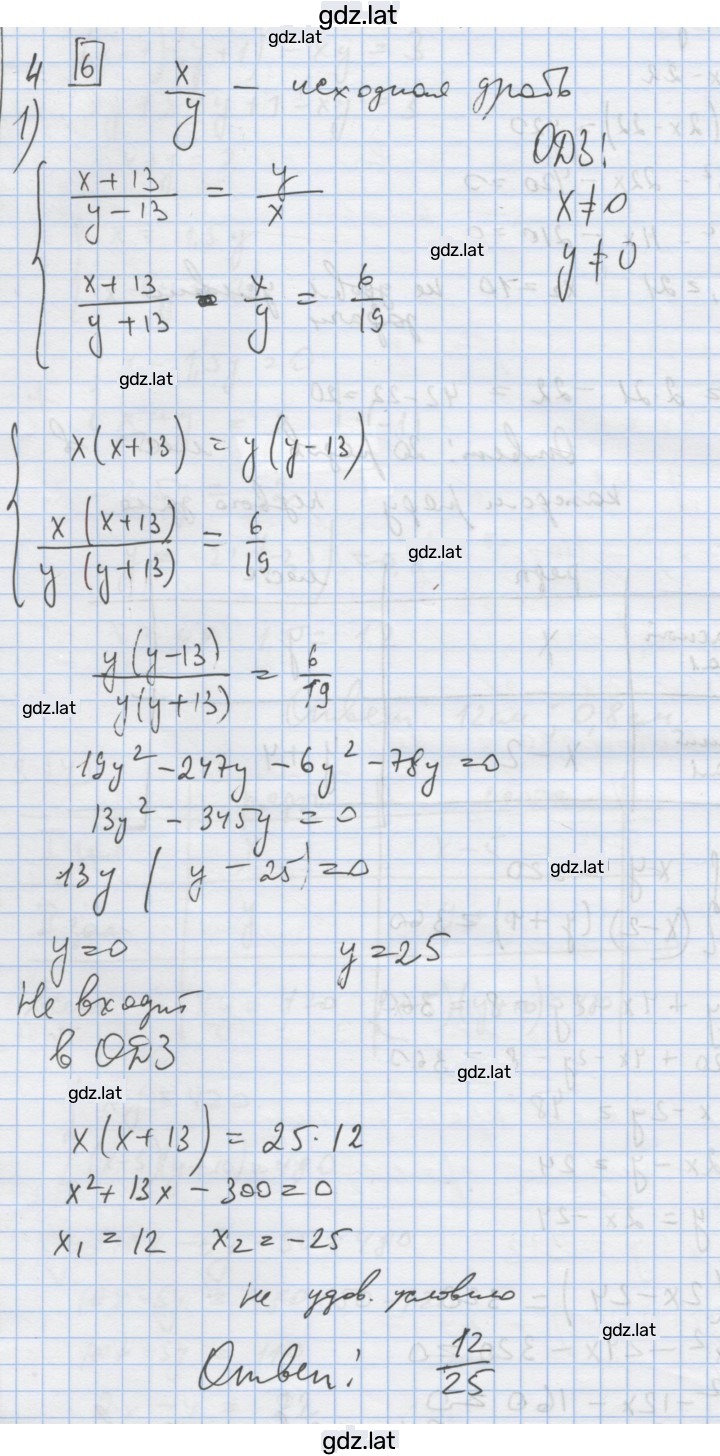 gdz.lat
gdz.lat
4 6 x/y - исходная дробь
1) ОДЗ:
{ (x+13)/(y-13) = y/x x≠0
gdz.lat y≠0
(x+13)/(y+13) · x/y = 6/19
gdz.lat
{ x(x+13) = y(y-13)
x(x+13)/y(y+13) = 6/19
gdz.lat
y(y-13)/y(y+13) = 6/19
gdz.lat
19y² - 247y - 6y² - 78y = 0
13y² - 345y = 0
13y ( y - 25) = 0 gdz.lat
y=0 y=25
Не входит
в ОДЗ
gdz.lat
gdz.lat
x(x+13) = 25·12
x² + 13x - 300 = 0
x₁ = 12 x₂ = -25
не удов. условию
gdz.lat
Ответ: 12/25
gdz.lat